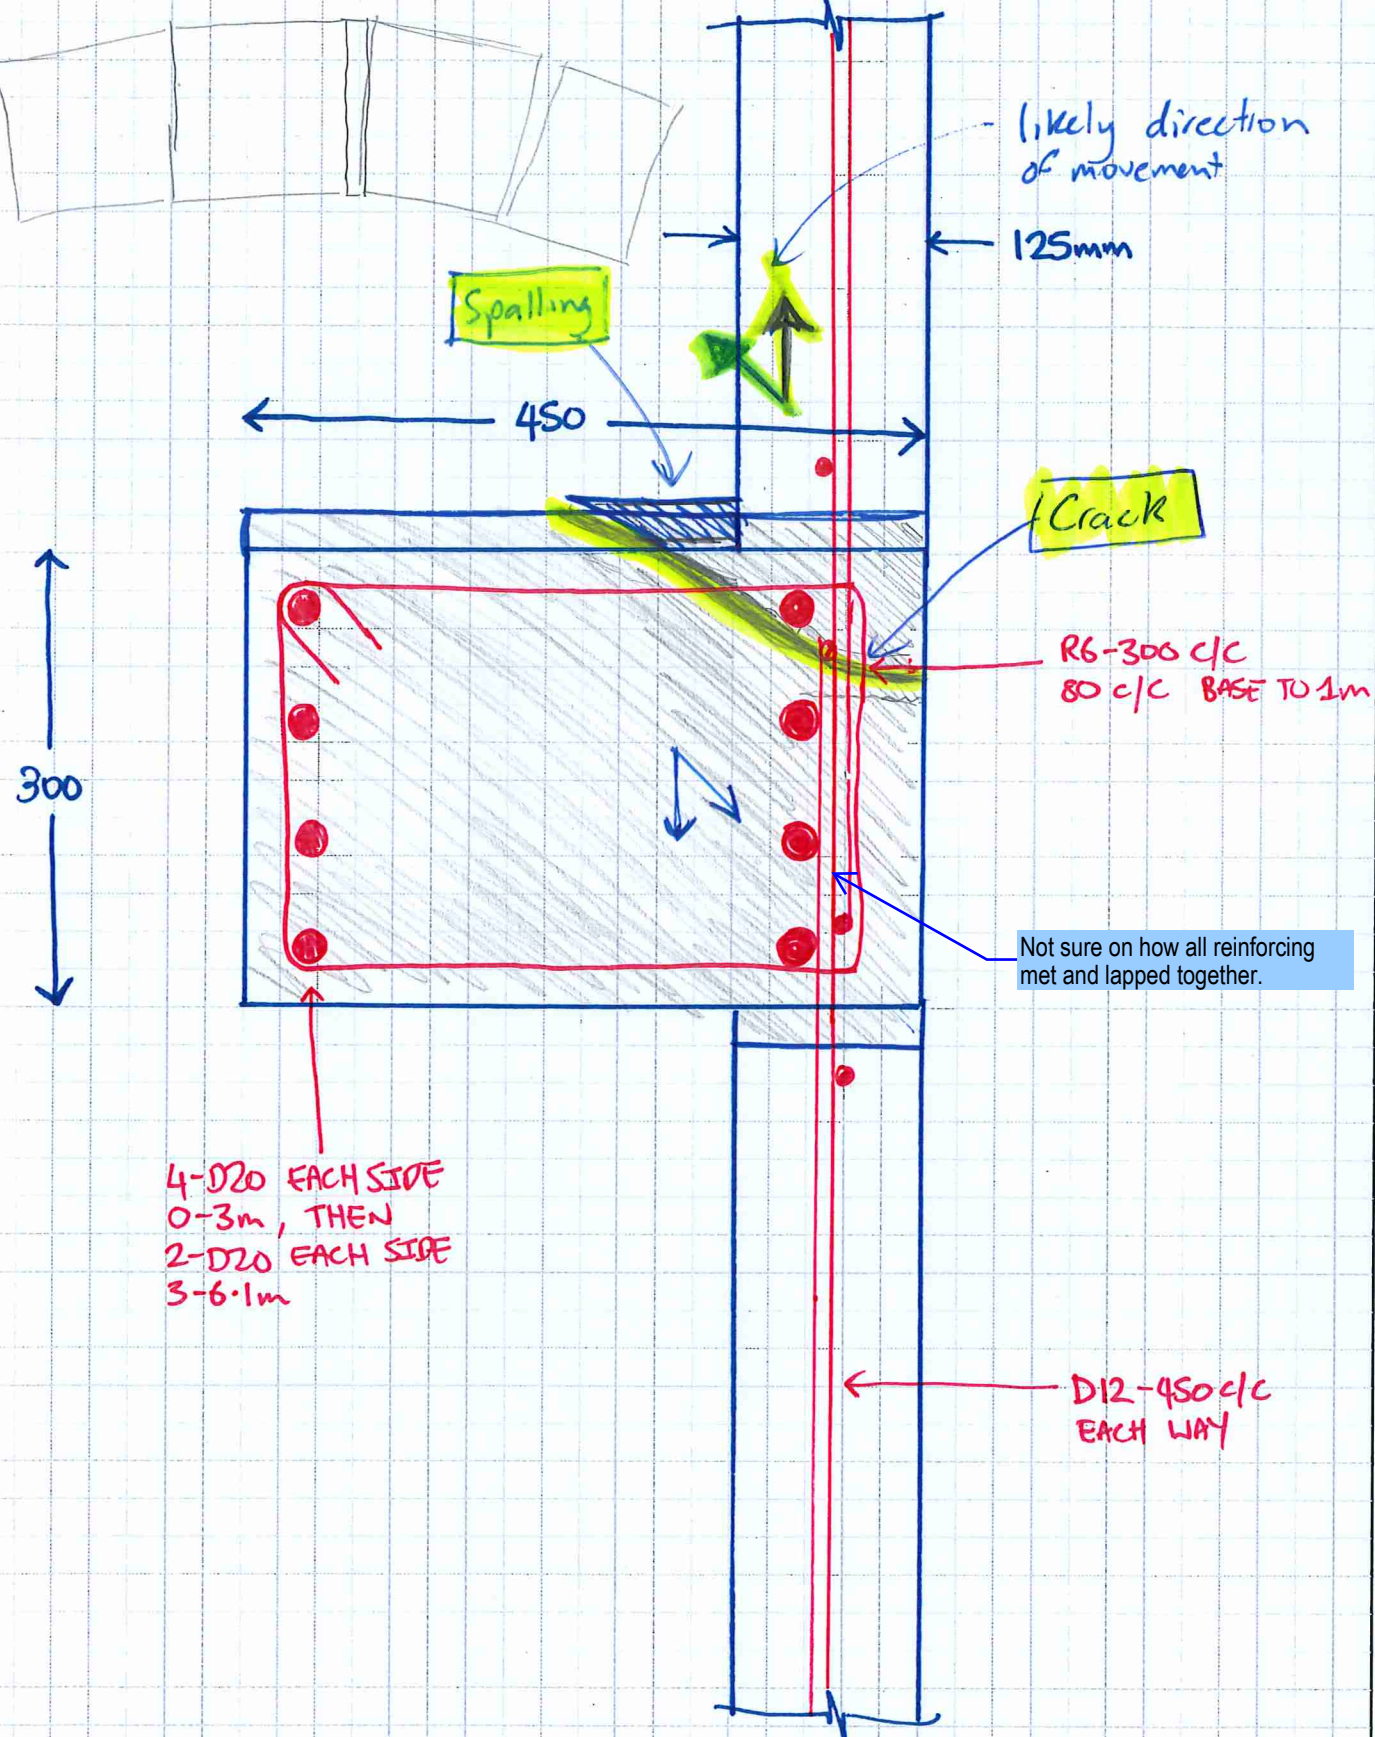 likely direction
of movement
125mm
Spalling
450
Crack
R6-300 c/c
80 c/c BASE TO 1m
300
Not sure on how all reinforcing
met and lapped together.
4-D20 EACH SIDE
0-3m, THEN
2-D20 EACH SIDE
3-6.1m
D12-450 c/c
EACH WAY